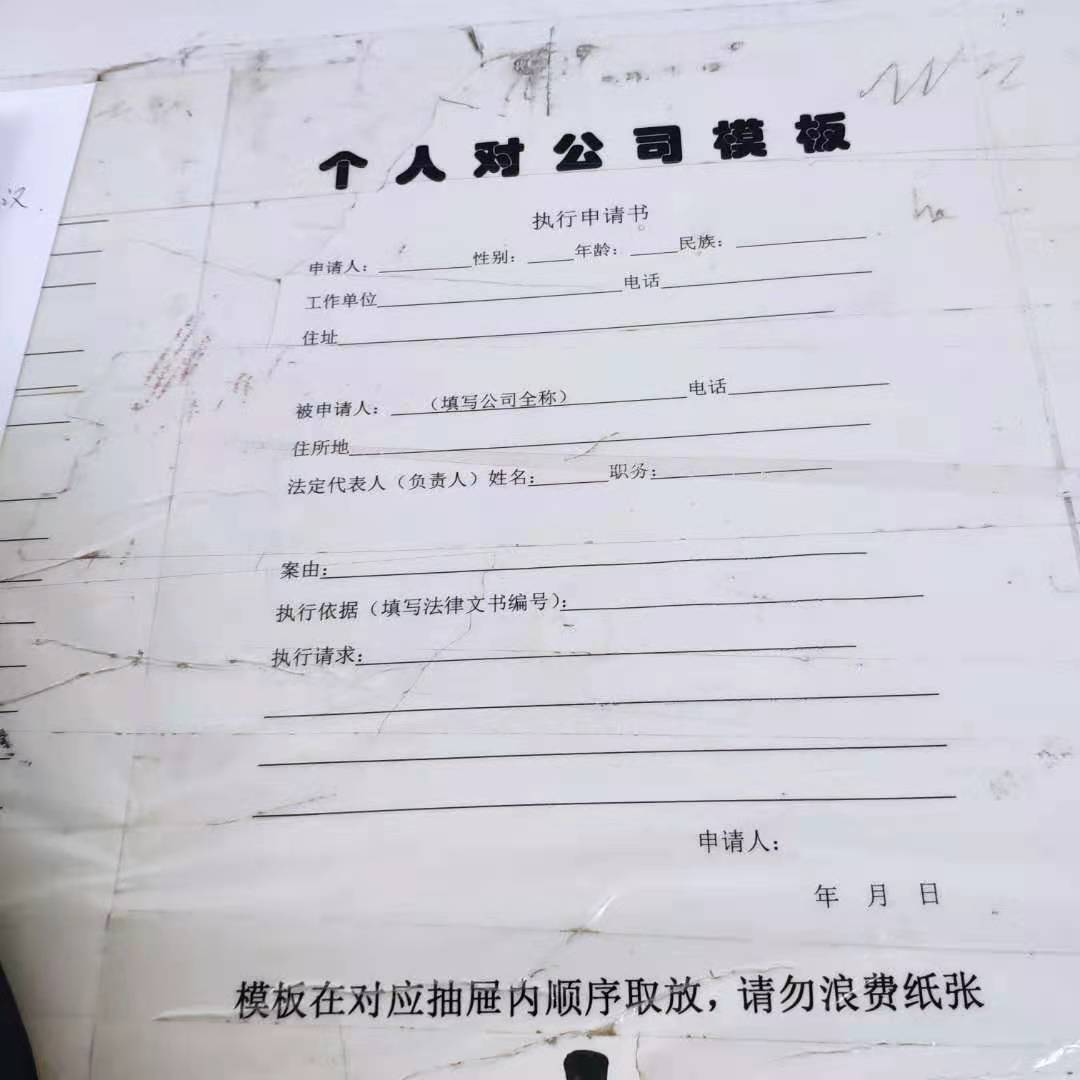 个人对公司模板
执行申请书
申请人：________性别：____年龄：____民族：__________
工作单位____________________电话________________
住址________________________________________
被申请人：___（填写公司全称）__________电话____________
住所地________________________________________
法定代表人（负责人）姓名：______职务：______________
案由：________________________________________
执行依据（填写法律文书编号）：____________________________
执行请求：________________________________________
申请人：
年 月 日
模板在对应抽屉内顺序取放，请勿浪费纸张